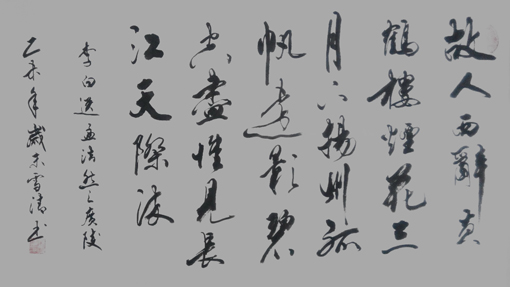 故人西辭黃
鶴樓煙花三
月下揚州孤
帆遠影碧
空盡惟見長
江天際流
李白送孟浩然之廣陵
乙未年歲末雪書